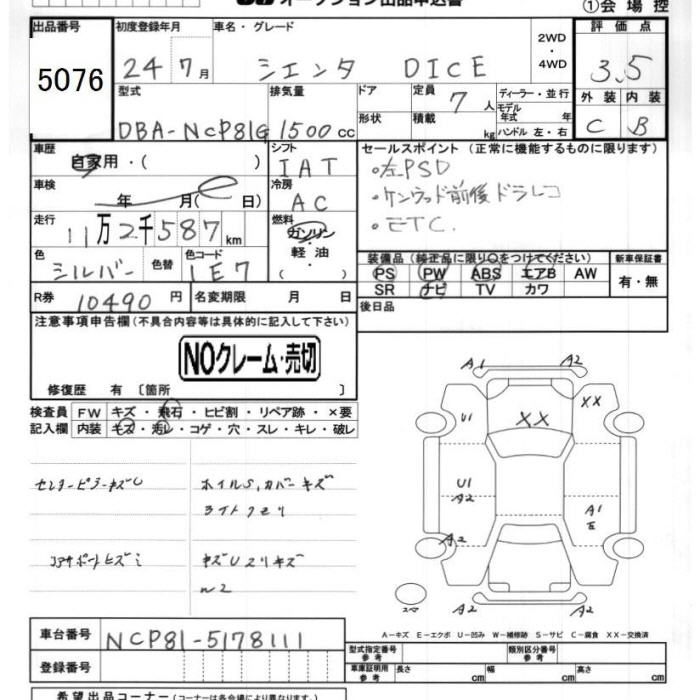 オークション出品申込書
①会場控
出品番号
5076
初度登録年月
24 7月
車名・グレード
シエンタ DICE
2WD
・
4WD
評価点
3.5
外装 内装
C B
型式
DBA-NCP81G
排気量
1500 cc
ドア
形状
定員 7 人
積載 kg
ディーラー・並行
モデル年式 年
ハンドル 左・右
車歴
自家用・( )
シフト
IAT
車検
年 月( 日)
冷房
AC
走行
11万2千587km
燃料
ガソリン
・
軽油
・
( )
色
シルバー
色替
色コード
1E7
R券 10490 円
名変期限 月 日
セールスポイント (正常に機能するものに限ります)
・左PSD
・ケンウッド前後ドラレコ
・ETC.
装備品 (純正品に限り○をつけてください)
PS PW ABS エアB AW
SR ナビ TV カワ
新車保証書
有・無
後日品
注意事項申告欄 (不具合内容等は具体的に記入して下さい)
NOクレーム・売切
修復歴 有 〔箇所 〕
検査員 FW キズ・飛石・ヒビ割・リペア跡・×要
記入欄 内装 キズ・汚レ・コゲ・穴・スレ・キレ・破レ
センターピラーキズU
ホイルS,カバーキズ
ライトクモリ
コアサポートヒズミ
キズUスリキズ
W2
A1 A2
U1 XX XX
U1
A2
A1
E
A2
スペア A2 A2
A-キズ E-エクボ U-凹み W-補修跡 S-サビ C-腐食 XX-交換済
車台番号 NCP81-5178111
登録番号
型式指定番号
参考
類別区分番号
参考
車庫証明用
参考
長さ cm 幅 cm 高さ cm
希望出品コーナー(コーナーは各会場により異なります。)